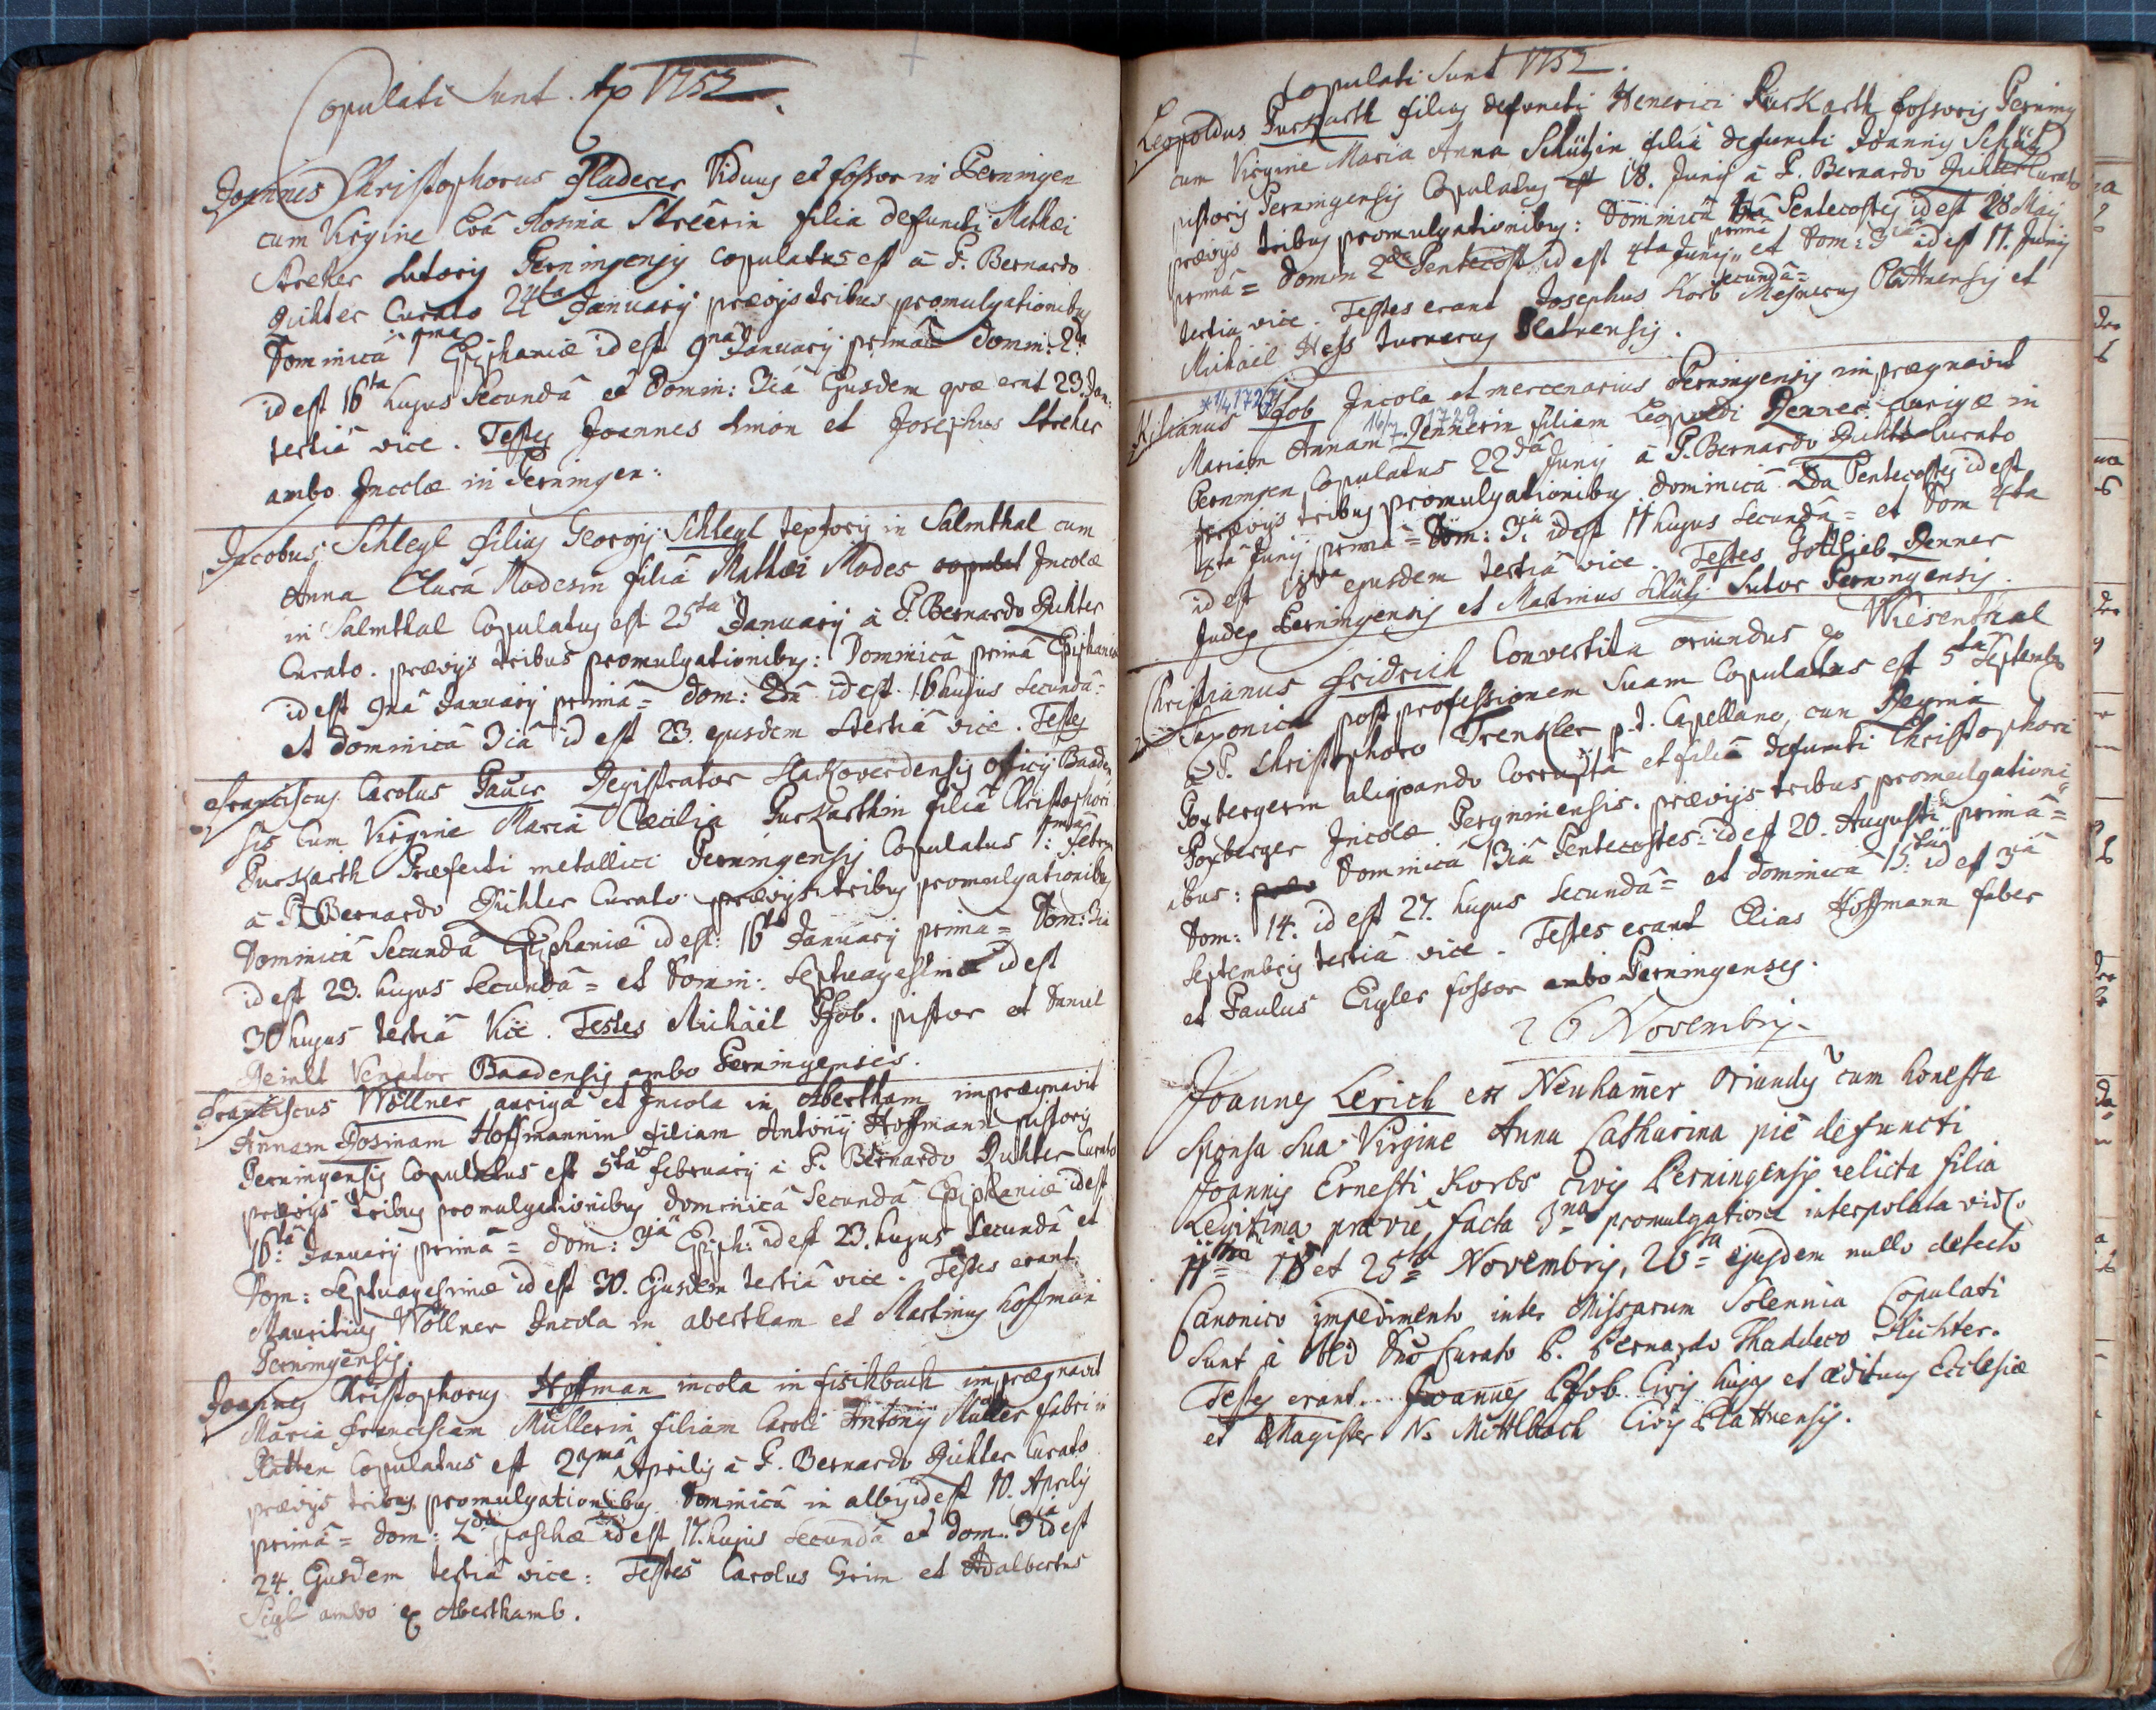 Copulati Sunt. Ao 1752.
Joannes Christophorus Fladerer Viduus et fossor in Perningen
cum Virgine Evâ Rosina Strêerin filia defuncti Mathæi
Streher Sutoris Perningensis copulatus est â P. Bernardo
Richter Curato 24ta Januarij prævijs tribus promulgationibus
Dominica 1ma Epiphaniæ id est 9na Januarij primâ Domin: 2da
id est 16ta hujus Secundâ et Domin: 3iâ Ejusdem quæ erat 23. Jan:
tertiâ vice. Testes Joannes Simon et Josephus Streher
ambo Incolæ in Perningen:
Jacobus Schlegl filius Georgij Schlegl textoris in Salmthal cum
Anna Clara Moderin filiâ Mathæi Modes Incolæ
in Salmthal Copulatus est 25ta Januarij â P. Bernardo Richter
Curato. prævijs tribus promulgationibus: Dominicâ primâ Epiphaniæ
id est 9nâ Januarij primâ = dom: 2dâ id est. 16 hujus Secundâ =
et Dominicâ 3iâ id est 23. ejusdem tertiâ vice. Testes
Franciscus Carolus Pauer Registrator officij Baaden
sis Cum Virgine Mariâ Cæcilia Purkarthin filiâ Christophori
Purkarth Præfecti metallici Perningensis Copulatus 1: febru
â P. Bernardo Richter Curato prævijs tribus promulgationibus
Dominicâ Secundâ Epiphaniæ id est: 16ta Januarij primâ = Dom: 3iâ
id est 23. hujus Secundâ = et Domin: Septuagesimæ id est
30 hujus tertiâ Vice. Testes Michaël Pfob. pistor et Daniel
Venator Baadensis ambo Perningenses.
Franciscus Wöllner auriga et Incola in Abertham imprægnavit
Annam Rosinam Hoffmannin filiam Antonij Hoffmann pistoris
Perningensis Copulatus est 5ta februarij â P. Bernardo Richter Curato
prævijs tribus promulgationibus dominicâ Secundâ Epiphaniæ id est
16ta: Januarij primâ = dom: 3iâ Epiph: id est 23. hujus Secundâ et
Dom: Septuagesimæ id est 30. Ejusdem tertiâ vice. Testes erant
Mauritius Wöllner Incola in abertham et Martinus Hoffman
Perningensis.
Joannes Christophorus Hoffman incola in fischbach imprægnavit
Maria Franciscam Müllerin filiam Caroli Antonij Müller fabri in
Platten Copulatus est 27mâ Aprilis â P. Bernardo Richter Curato
prævijs tribus promulgationibus Dominicâ in albis id est 10. Aprilis
primâ = dom: 2dâ paschæ id est 17. hujus Secundâ et Dom. 3iâ id est
24. Ejusdem tertiâ vice: Testes Carolus Grim et Adalbertus
Sigl ambo ex Aberthamb.
Copulati Sunt 1752.
Leopoldus Purkarth filius defuncti Henerici Purkarth fossoris Perning
cum Virgine Maria Anna Schützin filiâ defuncti Joannis Schütz
pistoris Perningensis Copulatus est 18. Junij â P. Bernardo Richter Curato
prævijs tribus promulgationibus: Dominicâ Pentecostes id est 28 Maij
primâ = Domin 2dâ Pentecost id est 4ta Junij secundâ = et Dom: 3iâ id est 11. Junij
tertiâ vice. Testes erant Josephus Korb Plattnensis et
Michaël Hess turnerus Plattnensis.
*14 1727
Kilianus Pfob Incola et mercenarius Perningensis imprægnavit
16/7 1729
Mariam Annam Rennerin filiam Leopoldi Renner aurigæ in
Perningen Copulatus 22dâ Junij â P. Bernardo Richter Curato
prævijs tribus promulgationibus. dominicâ 2da Pentecostes id est
4tâ Junij primâ = Dom: 3iâ id est 11 hujus Secundâ = et Dom 4ta
id est 18va ejusdem tertiâ vice. Testes Gottlieb Renner
Judex Perningensis et Matinus Schütz Sutor Perningensis.
Christianus Fridrich Convertita oriundus ex Wiesenthal
Saxonicâ post professionem Suam Copulatus est 5ta Septembr
â P. Christophoro Trenkler p.t. Capellano, cum Regina
Poxbergerin aliquando Corruptâ et filiâ defuncti Christophori
Poxberger Incolæ Perginensis. prævijs tribus promulgation
ibus: Dominicâ 13iâ Pentecostes: id est 20. Augusti primâ =
Dom: 14. id est 27. hujus Secundâ = et dominicâ 15: id est 3iâ
Septembris tertiâ vice. Testes erant Elias Hoffmann faber
et Paulus Eigler fossor ambo Perningenses.
26 Novembris.
Joannes Lerich ex Neuhamer Oriundus cum honesta
Sponsa Sua Virgine Anna Catharina piè defuncti
Joannis Ernesti Korbs Civis Perningensis relicta filia
Legitima, præviè facta 3na promulgatione interpolata vid.
11ma 18 et 25ta Novembris, 26ta ejusdem nullo detecto
Canonico impedimento inter Missarum Solennia Copulati
Sunt â Dno Curato P. Bernardo Thaddeo Richter.
Testes erant... Joannes Pfob Civis hujas et ædituus Ecclesiæ
et Magister N. Mittlbach Civis Plattnensis.